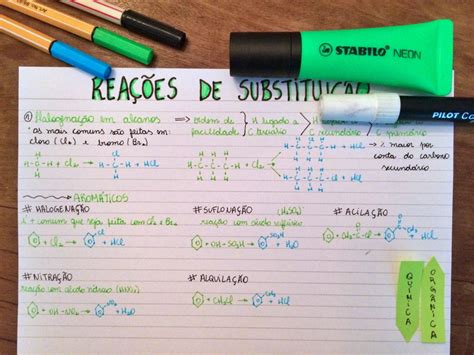 STABILO NEON
PILOT
REAÇÕES DE SUBSTITUIÇÃO
Halogenação em alcanos
ordem de facilidade
H ligado a
C terciário
C secundário
C primário
as mais comuns são feitas em:
cloro (Cl₂) e bromo (Br₂)
+ Cl₂
+ HCl
% maior por
conta do carbono
secundário
AROMÁTICOS
# HALOGENAÇÃO
+ comum que seja feita com Cl₂ e Br₂
+ Cl₂ → Cl + HCl
# SUFLONAÇÃO (H₂SO₄)
reação com ácido sulfúrico
+ OH-SO₃H → SO₃H + H₂O
# ACILAÇÃO
+ CH₃-C-Cl → + HCl
# NITRAÇÃO
reação com ácido nítrico (HNO₃)
+ OH-NO₂ → NO₂ + H₂O
# ALQUILAÇÃO
+ CH₃Cl → CH₃ + HCl
QUÍMICA
ORGÂNICA